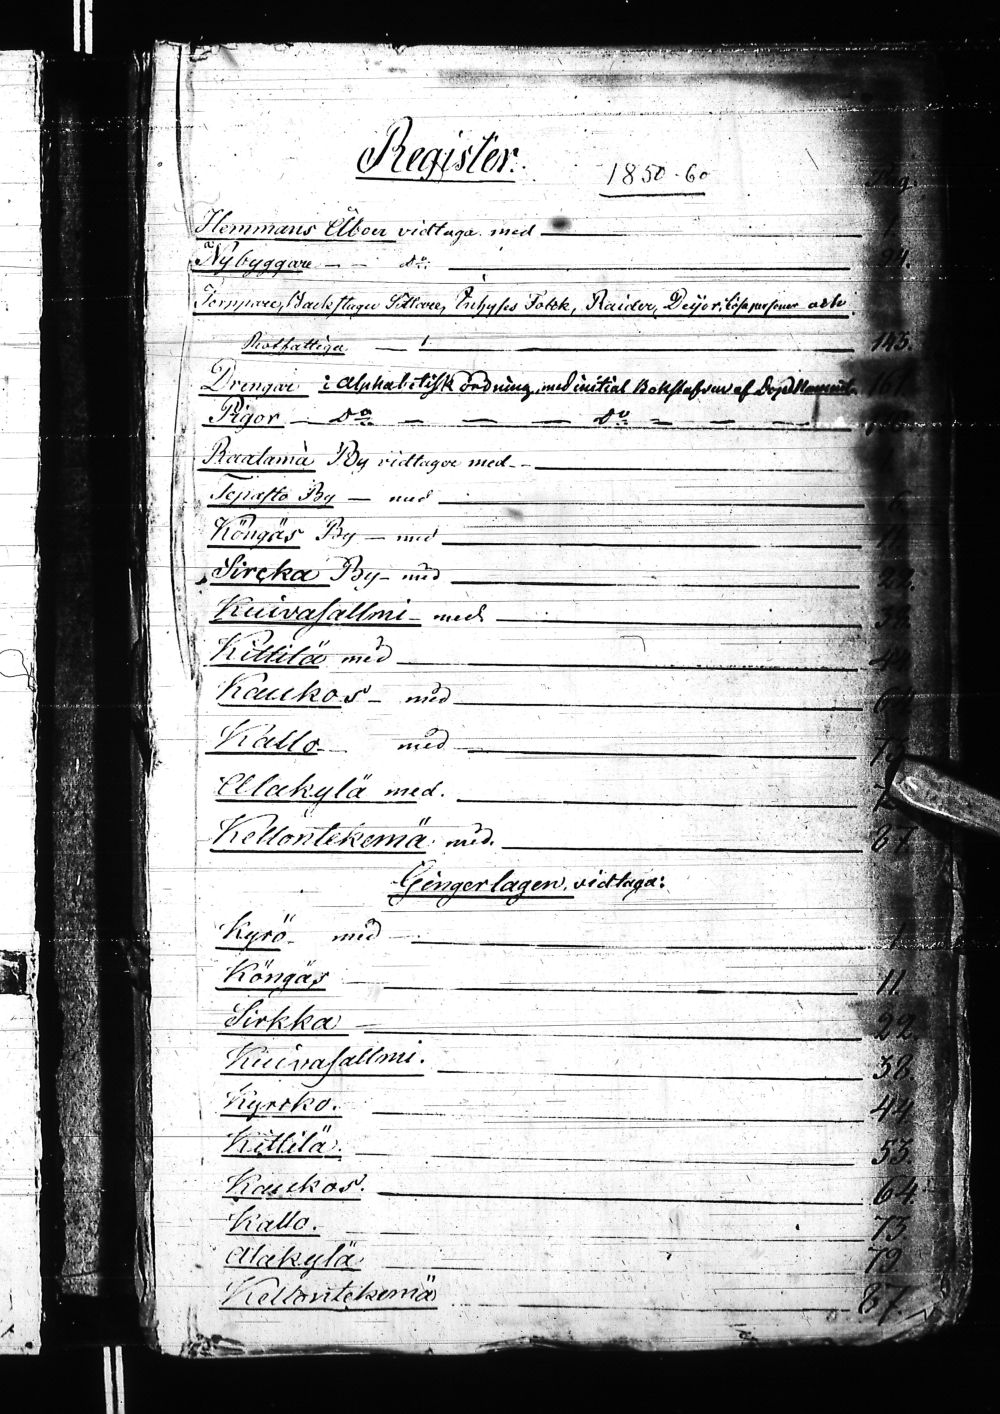 Register.
1850-60
Pag.
Hemmans Åboer vidtaga med 1
Nybyggare - - Do: 94.
Torppare, Backstugu Sittare, Inhyses Folck, Raidor, Dejor, löspersoner och
Rotfattiga 143.
Drengar i Alphabetisk ordning, med initial Bokstafven af Dopnamnet
Pigor - Do - - - Do - - -
Raalama By vidtager med - - 1
Tepasto By - med 6
Köngäs By - med 11
Sircka By - med 22.
Kuivasallmi - med 38
Kittilä med 44
Kaukos - med 64
Kallo med 73
Alakylä med.
Kellontekemä med. 87.
Gingerlagen vidtaga:
Kyrö - med - 1
Köngäs 11.
Sirkka 22.
Kuivasallmi. 38.
Kyrcko. 44
Kittilä. 53.
Kaukos. 64
Kallo. 73
Alakylä 79
Kellontekemä 87.